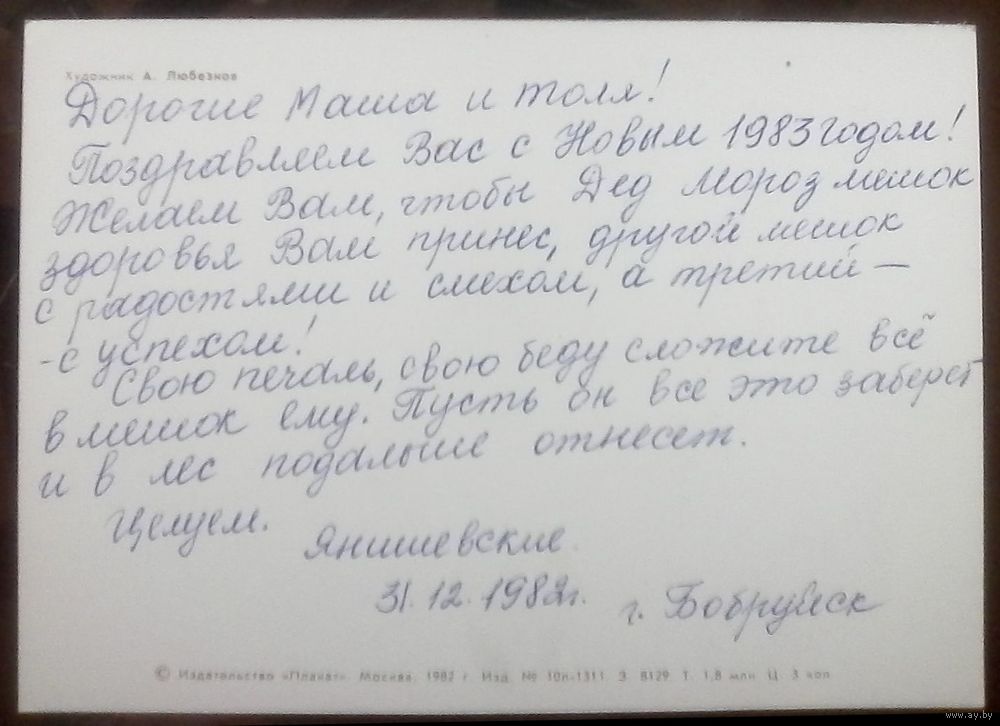 Художник А. Любезнов
Дорогие Маша и толя!
Поздравляем Вас с Новым 1983 годом!
Желаем Вам, чтобы Дед Мороз мешок
здоровья Вам принес, другой мешок
с радостями и смехом, а третий —
-с успехом!
Свою печаль, свою беду сложите всё
в мешок ему. Пусть он все это заберёт
и в лес подальше отнесет.
Целуем.
Янишевские
31.12.1982г. г. Бобруйск
© Издательство «Плакат». Москва. 1982 г. Изд. № 10п-1311 З. 8129 Т. 1,8 млн. Ц. 3 коп.
www.ay.by